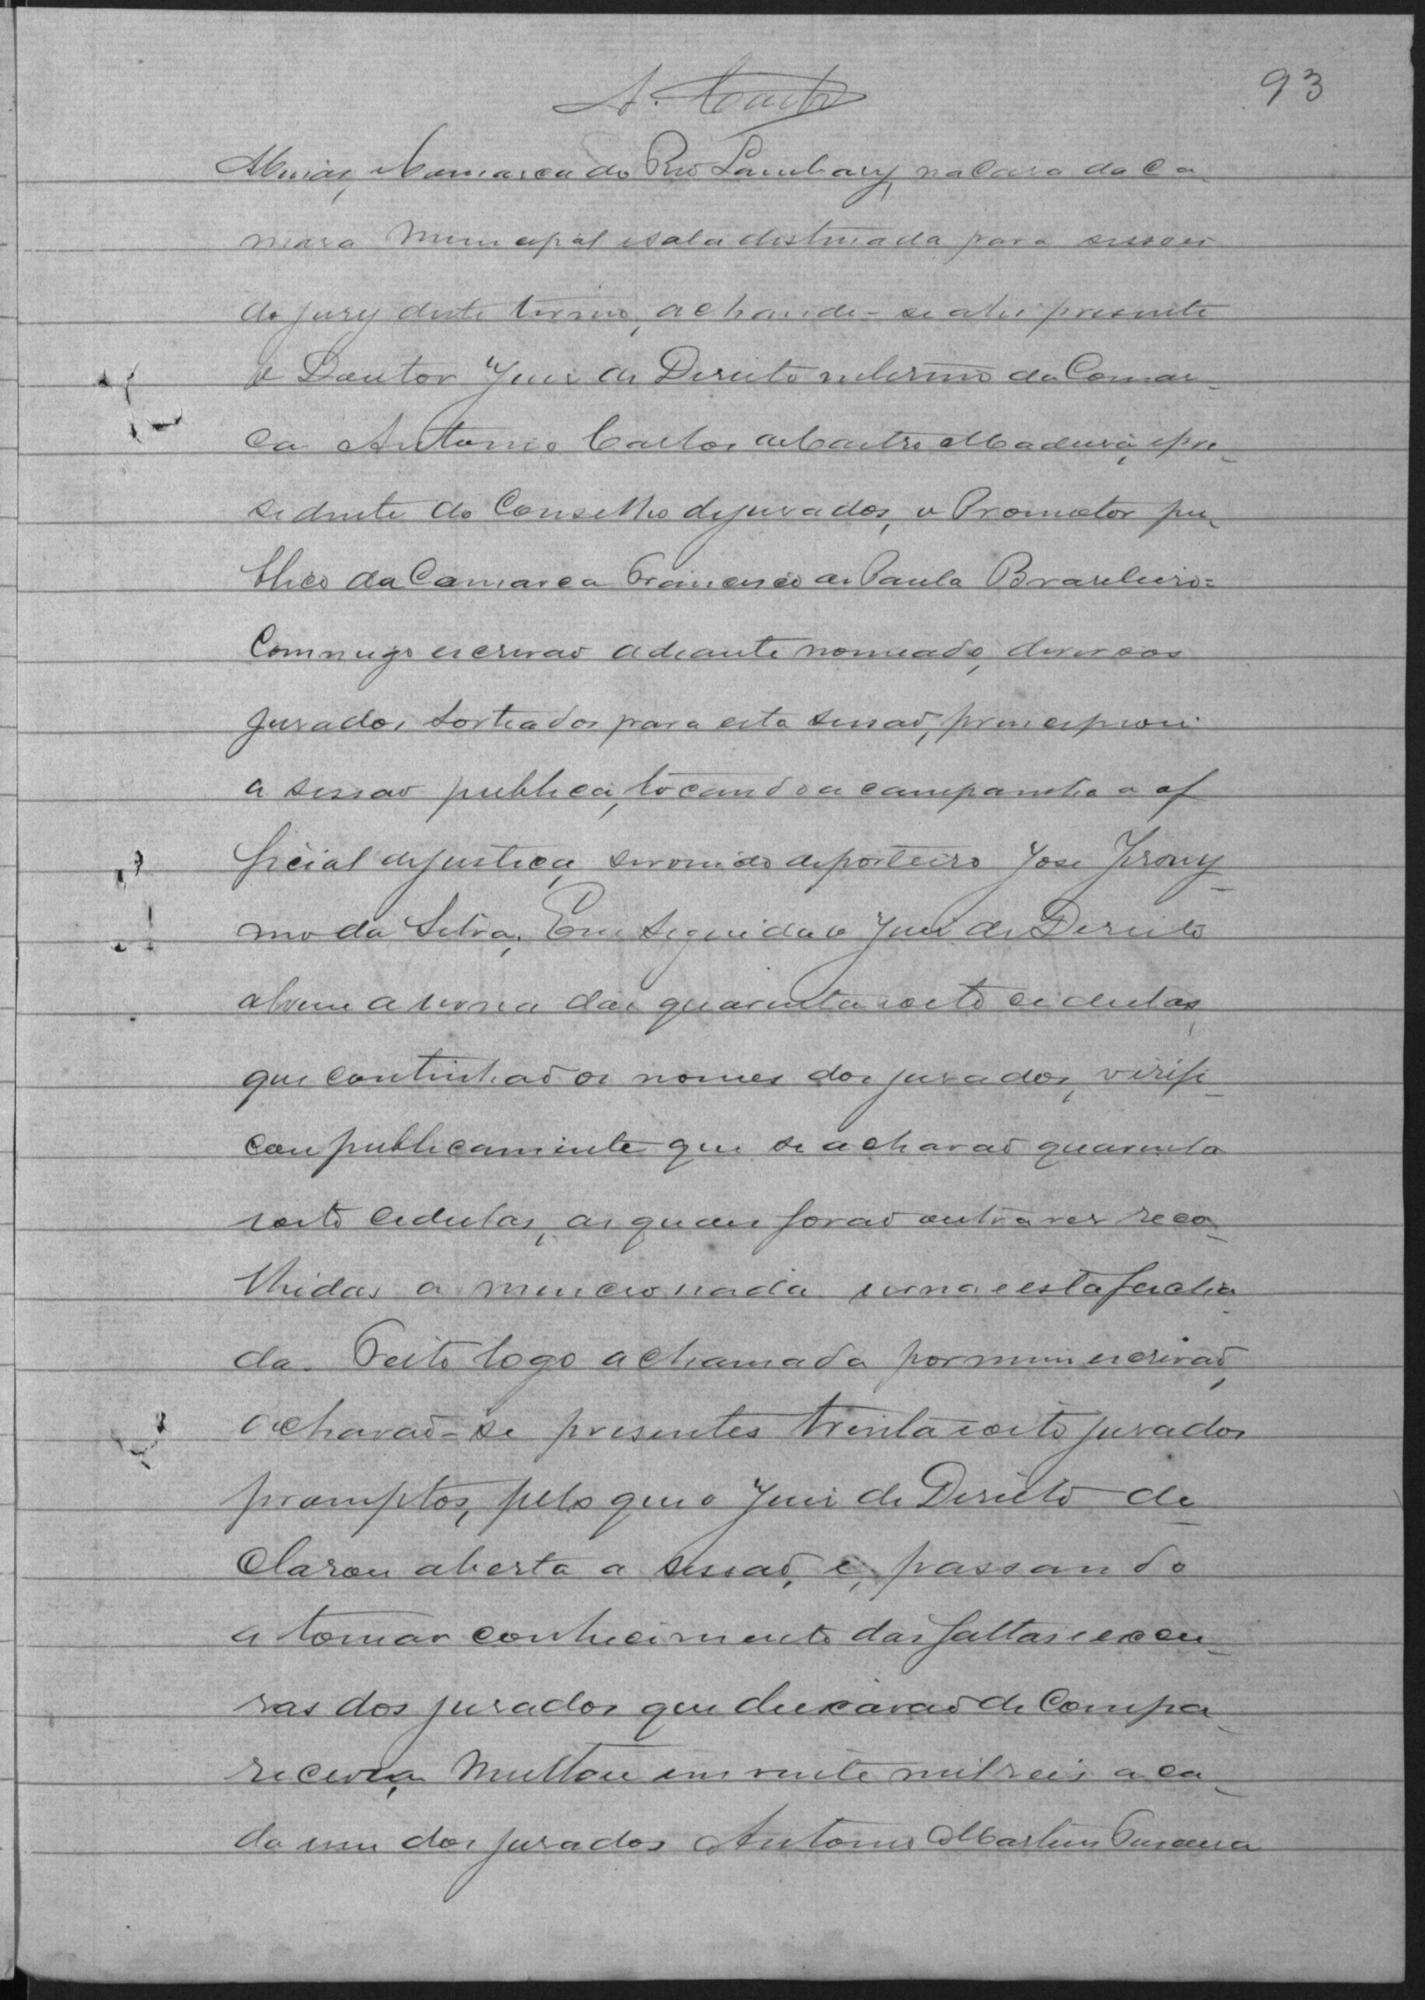 A. Castro
93
Minas, Comarca do Rio Lambary, na Casa da Ca-
mara Municipal e sala destinada para sessoes
do jury deste termo, achando-se ahi presente
o Doutor Juis de Direito interino da Comar-
ca Antonio Carlos de Castro Madeira, e pre-
sidente do Conselho de jurados, o Promotor pu-
blico da Comarca Francisco de Paula Brasileiro=
Commigo escrivaõ adeante nomeado, diversos
jurados sorteados para esta sessaõ, principiou
a sessaõ publica, tocando a campanha o of
ficial de justiça, servindo de porteiro José Jerony-
mo da Silva. Em seguida o Juis de Direito
abrine a urna das quarenta e oito cedulas,
que continhaõ os nomes dos jurados, verifi-
cou publicamente que se achavaõ quarenta
e oito cedulas, as quaes foraõ outra ves reco-
lhidas a mencionada urna e esta fecha
da. Feito logo a chamada por mim escrivaõ,
acharaõ-se presentes trinta e oito jurados
promptos, pelo que o Juis de Direito de-
clarou aberta a sessaõ, e, passando
a tomar conhecimento das faltas e escu-
sas dos jurados que deixaraõ de compa-
recer, a Multou em vinte mil reis a ca-
da um dos jurados Antonio Martins